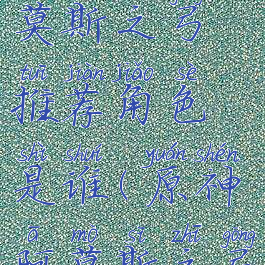 莫斯之弓
tuī jiàn jiǎo sè
推荐角色
shì shuí ( yuán shén
是谁(原神
ā mò sī zhī gōng
阿莫斯之弓